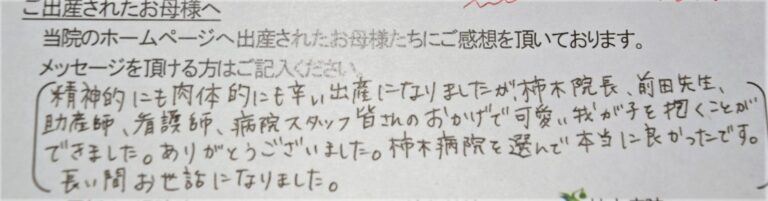 ご出産されたお母様へ
当院のホームページへ出産されたお母様たちにご感想を頂いております。
メッセージを頂ける方はご記入ください。
精神的にも肉体的にも辛い出産になりましたが、柿木院長、前田先生、
助産師、看護師、病院スタッフ皆さんのおかげで可愛い我が子を抱くことが
できました。ありがとうございました。柿木病院を選んで本当に良かったです。
長い間お世話になりました。